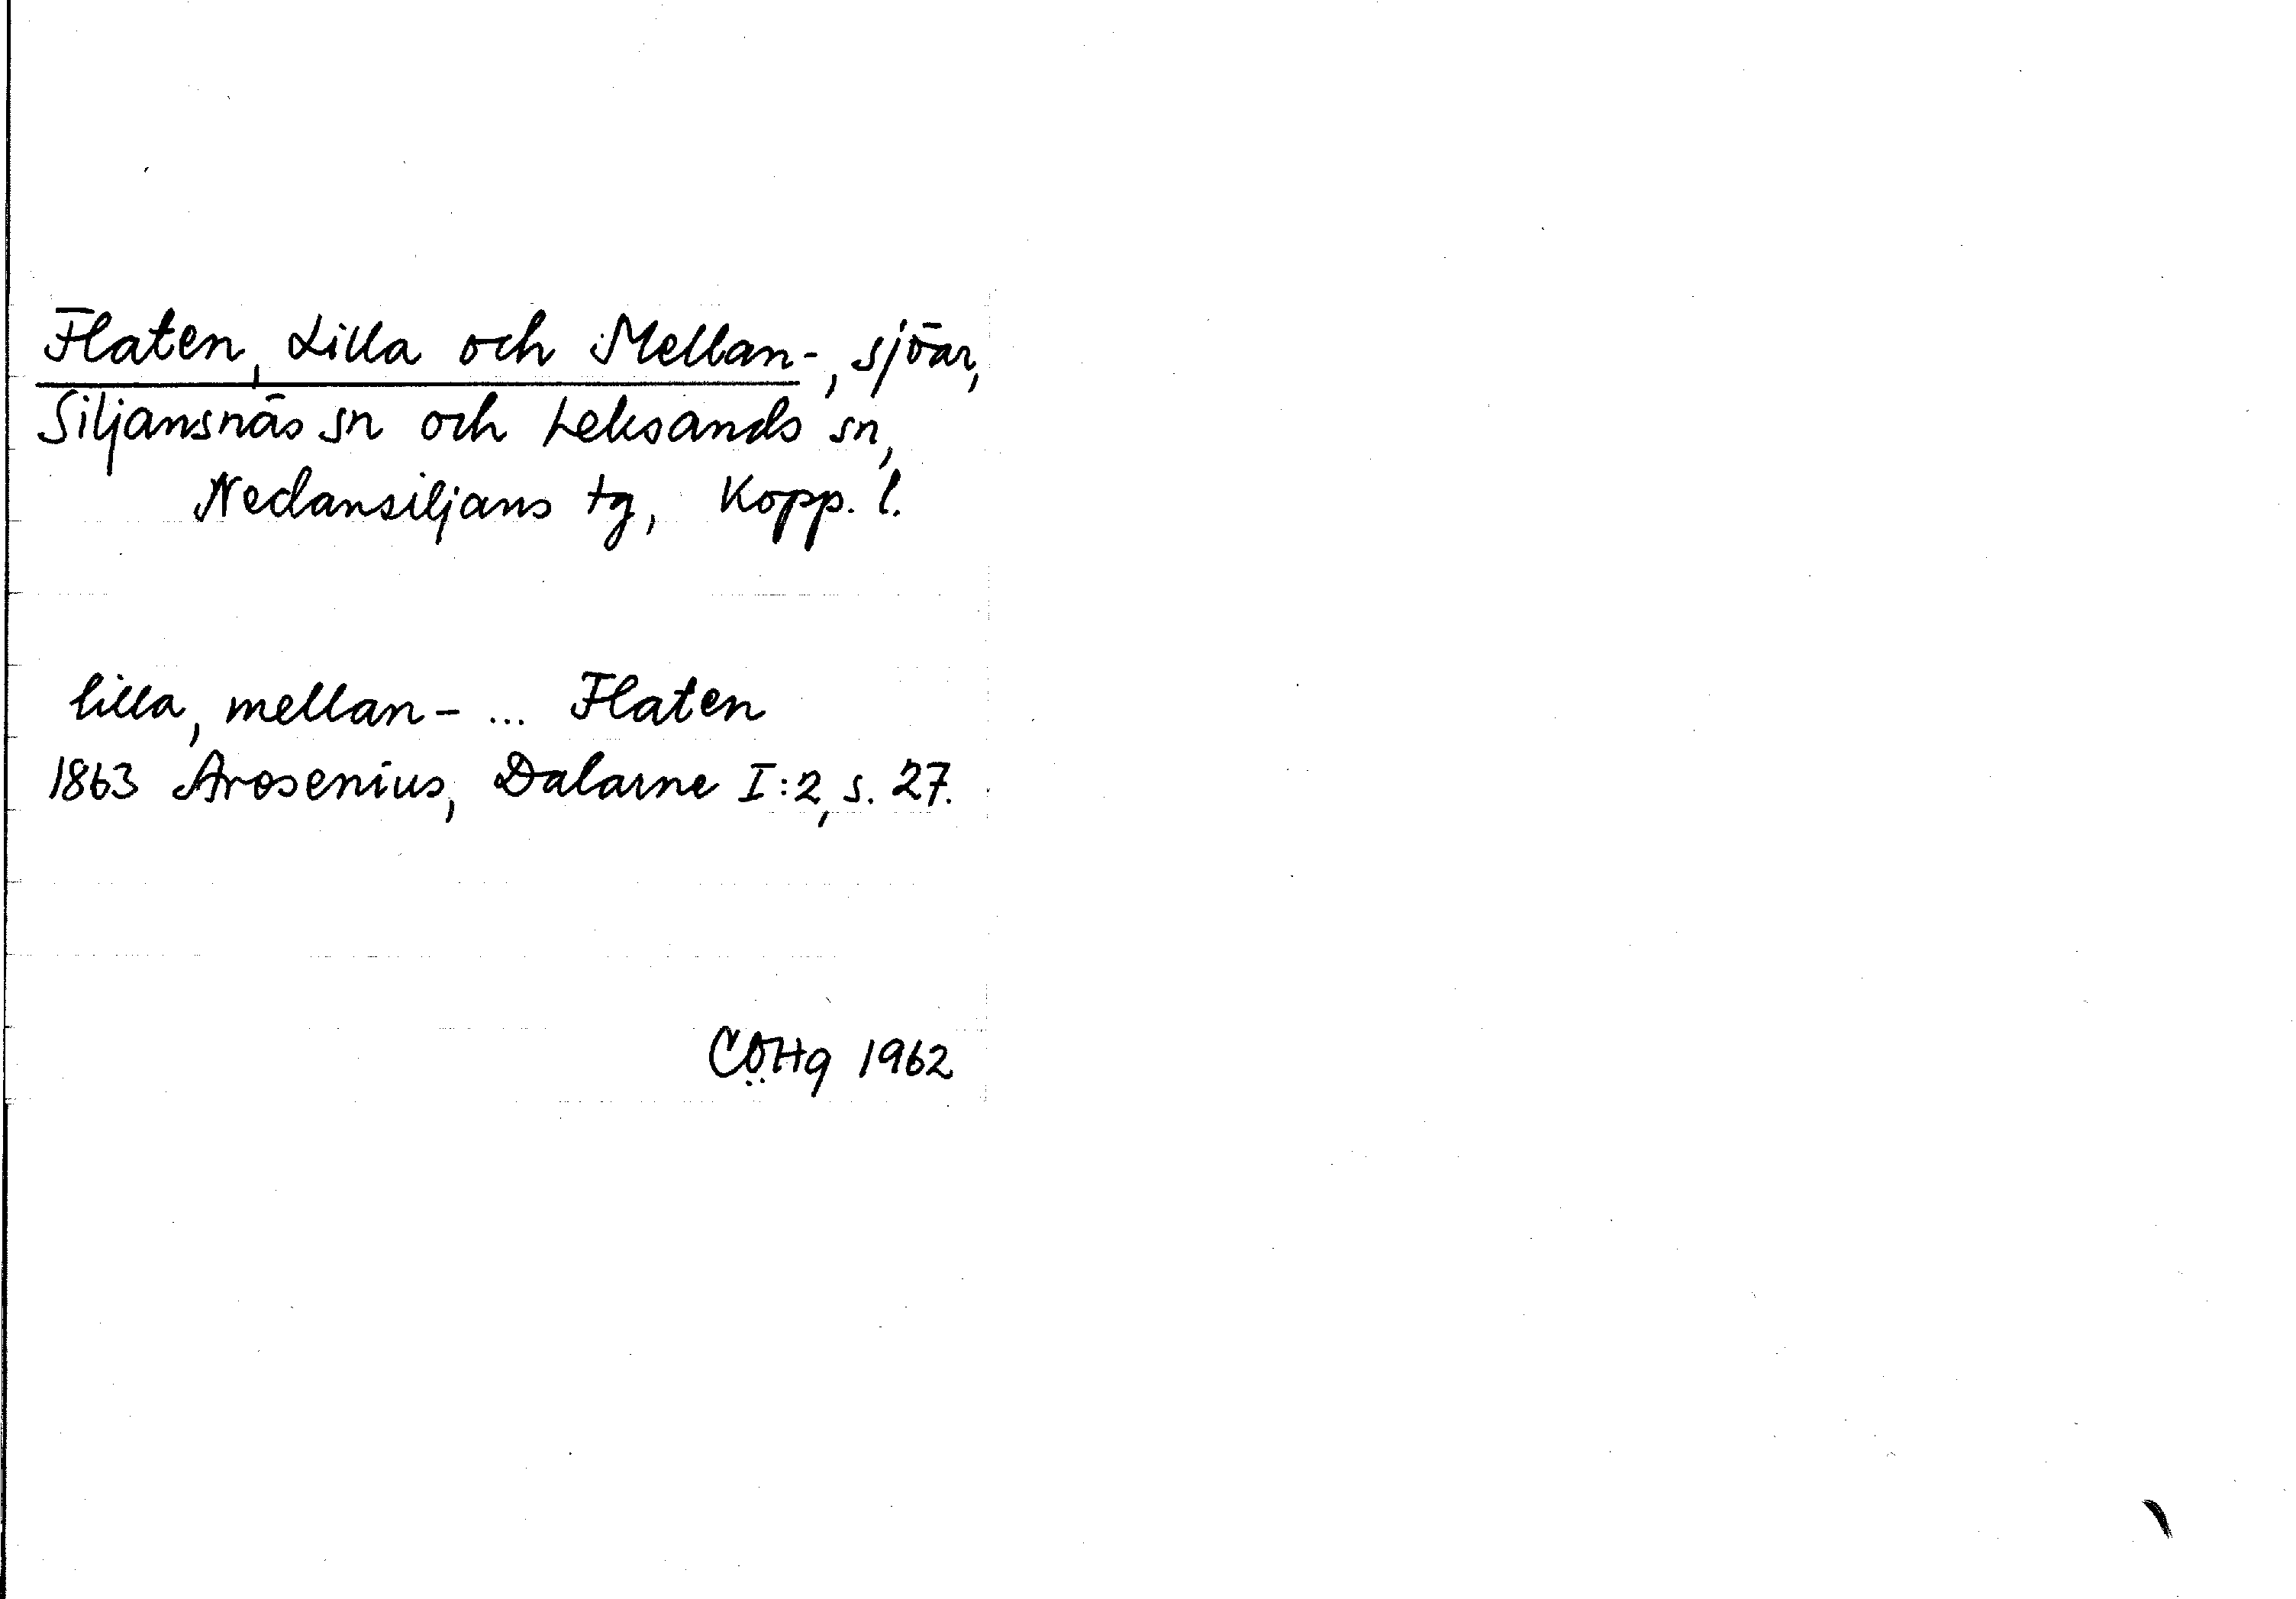 Flaten, Lilla och Mellan-, sjöar,
Siljansnäs sn och Leksands sn,
Nedansiljans tg, Kopp. l.
lilla, mellan- ... Flaten
1863 Arosenius, Dalarne I:2, s. 27.
CÖHg 1962